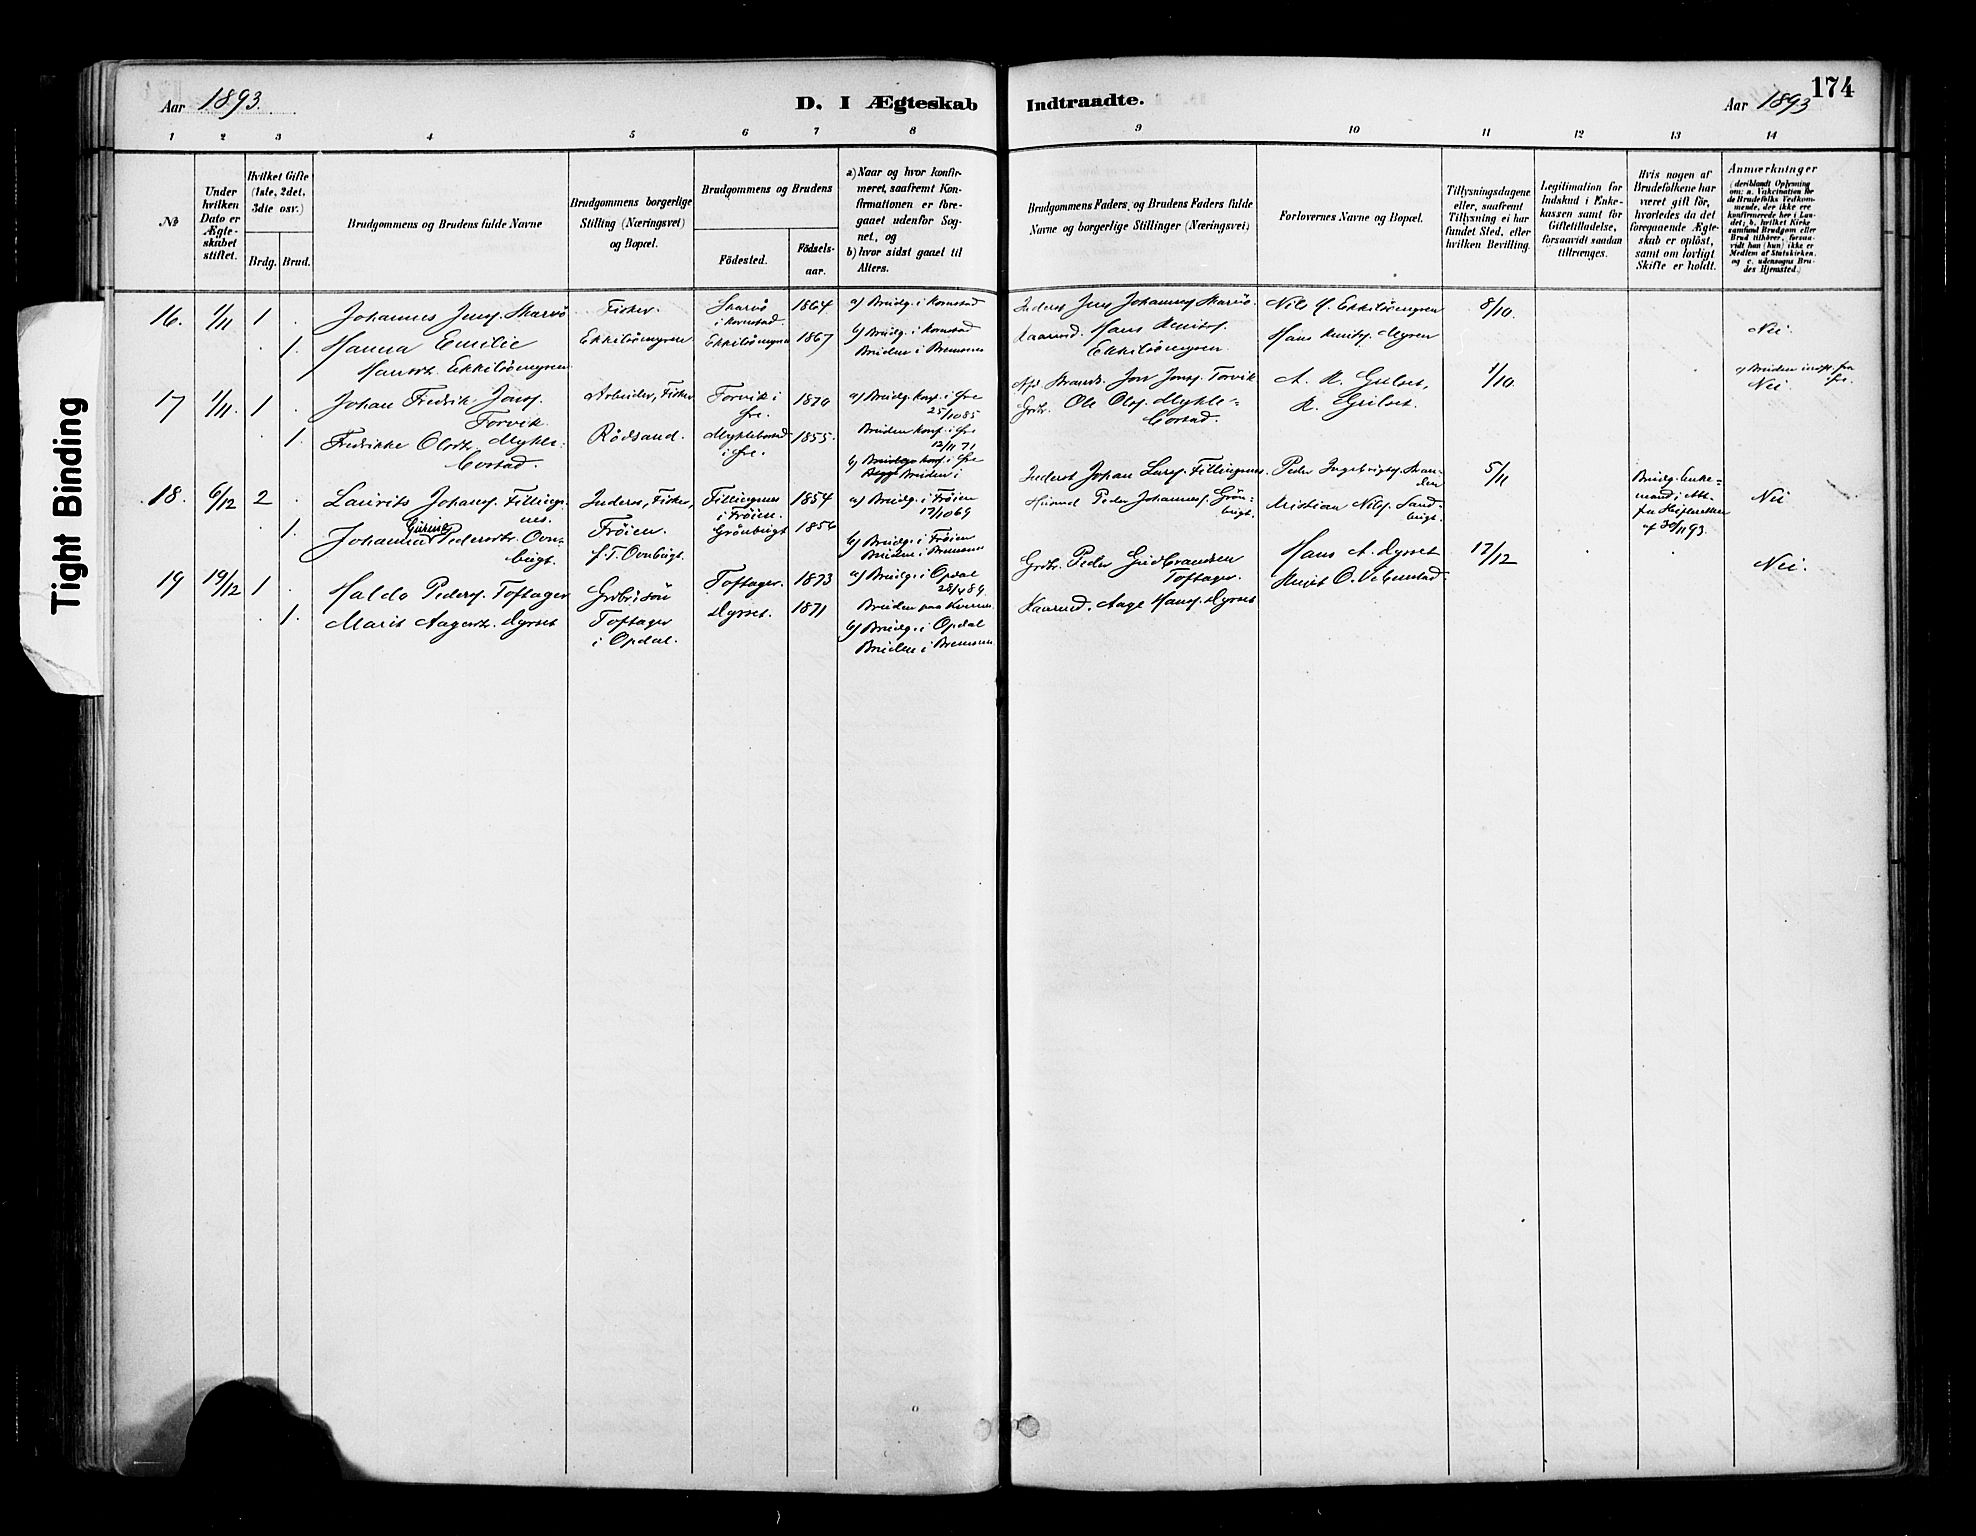 Tight Binding
Aar 1893.
D. I Ægteskab
Indtraadte.
Aar 1893
174
1 2 3 4 5 6 7 8
9 10 11 12 13 14
№
Under hvilken Dato er Ægteskabet stiftet.
Hvilket Gifte (1ste, 2det, 3die osv.)
Brdg. Brud.
Brudgommens og Brudens fulde Navne
Brudgommens borgerlige Stilling (Næringsvei) og Bopæl.
Brudgommens og Brudens
Födested.
Födselsaar.
a) Naar og hvor konfirmeret, saafremt Konfirmationen er foregaaet udenfor Sognet, og
b) hvor sidst gaaet til Alters.
Brudgommens Faders, og Brudens Faders fulde Navne og borgerlige Stillinger (Næringsvei)
Forlovernes Navne og Bopæl.
Tillysningsdagene eller, saafremt Tillysning ei har fundet Sted, efter hvilken Bevilling.
Legitimation for Indskud i Enkekassen samt for Giftetilladelse, forsaavidt saadan tiltrænges.
Hvis nogen af Brudefolkene har været gift för, hvorledes da det foregaaende Ægteskab er oplöst, samt om lovligt Skifte er holdt.
Anmærkninger
(deriblandt Oplysning om: a. Vakcination for de Brudefolks Vedkommende, der ikke ere konfirmerede her i Landet; b. hvilket Kirkesamfund Brudgom eller Brud tilhörer, forsaavidt han (hun) ikke er Medlem af Statskirken, og c. udensogns Brudes Hjemsted.)
16. 1/11 1 . Johannes Jensf. Skarvö Fisker. Skarvö i Kornstad. 1864 a) Brudg. i Kornstad
Inderst Jens Johannesf. Skarvö. Nils H. Ekkilsöemyren 8/10.
. 1. Hanna Emilie Hansdt. Ekkilsöemyren Ekkilsöemyren Ekkilsöemyren 1867 b) Brudg. i Kornstad
Bruden i Bremsnes
Kaarmd. Hans Knutsf. Ekkilsöemyren. Hans Knutsf. Myren Nei
17 1/11. 1 . Johan Fredrik Jonsf. Torvik. Arbeider, Fisker Torvik i Öre. 1870 a) Brudg. konf. i Öre 25/10 85
Strands. Jon Jonsf. Torvik A. K. Gulset, 1/10. Nei
. 1. Fredrikke Olsdt. Myklebostad. Rödsand. Myklebostad i Öre. 1855. Bruden konf. i Öre 12/11 71
Grdbr. Ole Olsf. Myklebostad. K. Gulset.
18. 6/12 2 . Laurits Johansf. Fillingsnes. Inderst, Fisker, Fillingsnes i Fröien. 1854 a) Brudg. i Fröien 17/10 69
Inderst Johan Larsf. Fillingsnes. Peder Ingebrigtsf. Stranden 5/11 Brudg. Enkemand; Att. fra Skifteretten af 30/11 93. Nei
. 1. Johanna Gurine Pedersdt. Ovnbugt. Fröien. f.T. Ovnbugt. Grönbugt 1856
b) Brudg. i Fröien
Bruden i Bremsnes
Huusmd. Peder Johannesf. Grönbugt. Kristian Nilsf. Sandbugt.
19 19/12 1 . Haldo Pedersf. Toftager Grdbr. sön Toftager. 1873 a) Brudg. i Opdal 28/4 89
Grdbr. Peder Gudbrandsen Toftager. Hans A. Dyrset 17/12 Nei.
. 1. Marit Aagesdt. Dyrset Toftager i Opdal. Dyrset. 1871 Bruden paa Kvernes
b) Brudg. i Opdal
Bruden i Bremsnes
Kaarmd. Aage Hansf. Dyrset